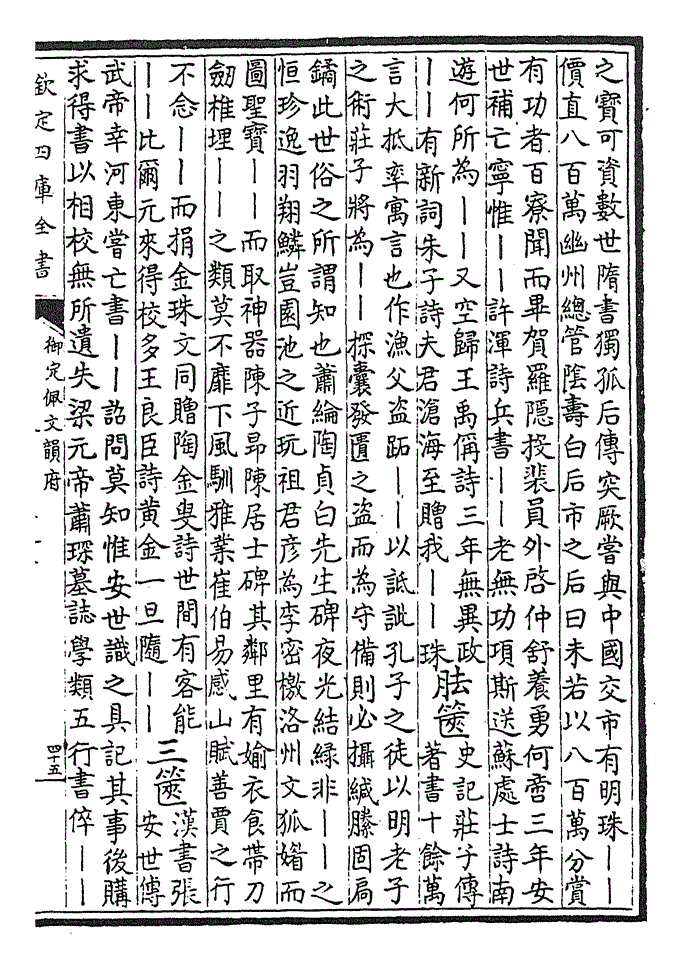 之寳可資數世隋書獨孤后傳突厥嘗與中國交市有明珠――
價直八百萬幽州總管陰壽白后市之后曰未若以八百萬分賞
有功者百寮聞而畢賀羅隠投裴員外啓仲舒養勇何啻三年安
世補亡寧惟――許渾詩兵書――老無功項斯送蘇處士詩南
遊何所為――又空歸王禹偁詩三年無異政
――有新詞朱子詩夫君滄海至贈我――珠
胠篋
史記莊子傳
著書十餘萬
言大抵率寓言也作漁父盗跖――以詆訿孔子之徒以明老子
之術莊子將為――探囊發匱之盗而為守備則必攝緘縢固扃
鐍此世俗之所謂知也蕭綸陶貞白先生碑夜光結緑非――之
恒珍逸羽翔鱗豈園池之近玩祖君彦為李密檄洛州文狐媚而
圖聖寳――而取神器陳子昻陳居士碑其鄰里有媮衣食帶刀
劒椎埋――之類莫不靡下風馴雅業崔伯易感山賦善賈之行
不念――而捐金珠文同贈陶金叟詩世間有客能
――比爾元來得校多王良臣詩黄金一旦隨――
三篋
漢書張
安世傳
武帝幸河東嘗亡書――詔問莫知惟安世識之具記其事後購
求得書以相校無所遺失梁元帝蕭琛墓誌學類五行書倅――
欽定四庫全書
御定佩文韻府
四十五